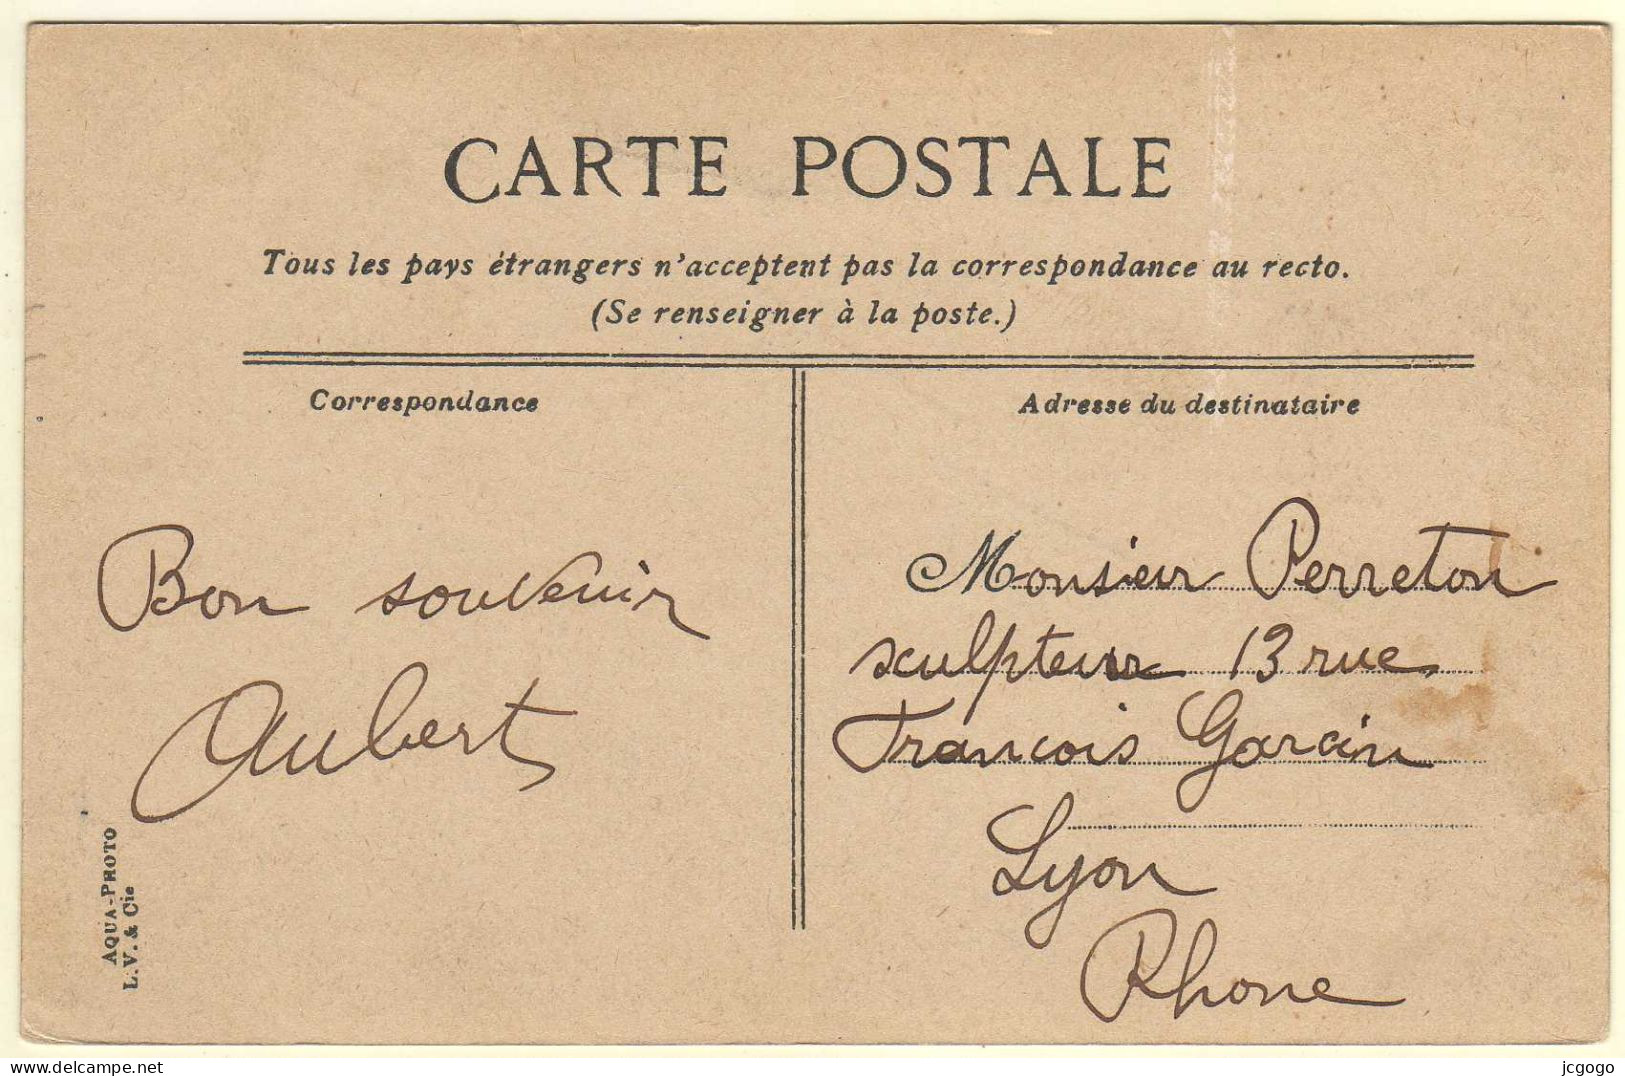 CARTE POSTALE
Tous les pays étrangers n'acceptent pas la correspondance au recto.
(Se renseigner à la poste.)
Correspondance
Adresse du destinataire
Bon souvenir
Aubert
Monsieur Perreton
sculpteur 13 rue
Francois Garcin
Lyon
Rhone
AQUA-PHOTO
L.V. & Cie
delcampe.net
jcgogo